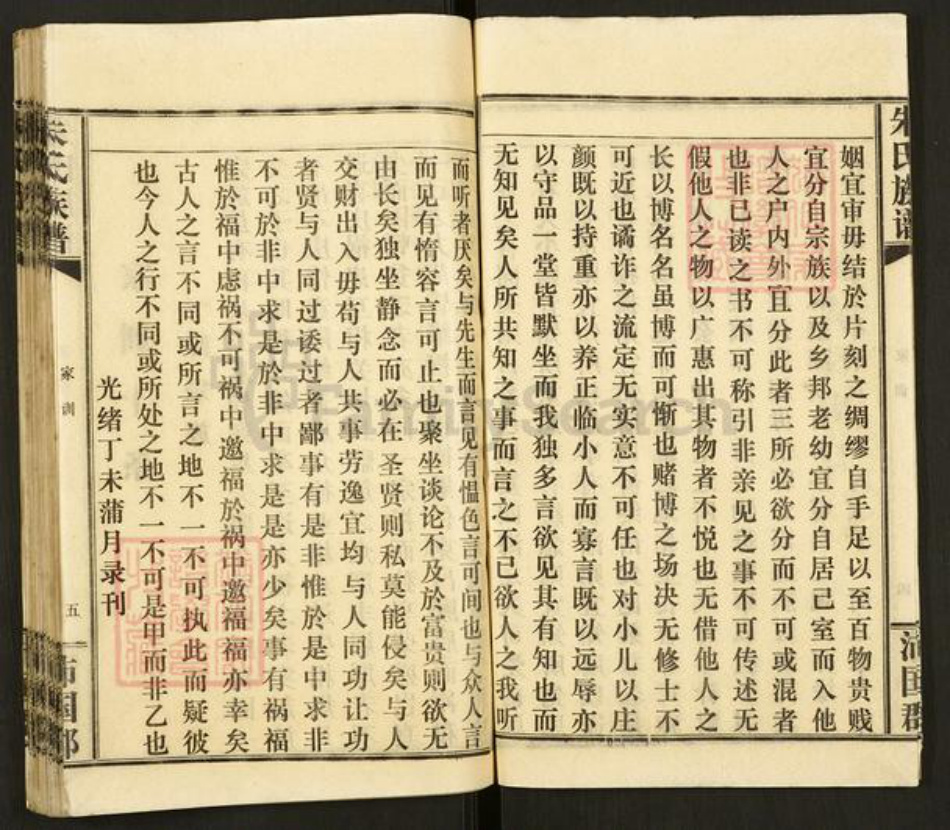 朱氏族谱
沛国郡
姻宜审毋结於片刻之绸缪自手足以至百物贵贱
宜分自宗族以及乡邦老幼宜分自居己室而入他
人之户内外宜分此者三所必欲分而不可或混者
也非已读之书不可称引非亲见之事不可传述无
假他人之物以广惠出其物者不悦也无借他人之
长以博名名虽博而可惭也赌博之场决无修士不
可近也谲诈之流定无实意不可任也对小儿以庄
颜既以持重亦以养正临小人而寡言既以远辱亦
以守品一堂皆默坐而我独多言欲见其有知也而
无知见矣人所共知之事而言之不已欲人之我听
而听者厌矣与先生而言见有愠色言可间也与众人言
而见有惰容言可止也聚坐谈论不及於富贵则欲无
由长矣独坐静念而必在圣贤则私莫能侵矣与人
交财出入毋苟与人共事劳逸宜均与人同功让功
者贤与人同过诿过者鄙事有是非惟於是中求非
不可於非中求是於非中求是是亦少矣事有祸福
惟於福中虑祸不可祸中邀福於祸中邀福福亦幸矣
古人之言不同或所言之地不一不可执此而疑彼
也今人之行不同或所处之地不一不可是甲而非乙也
光绪丁未蒲月录刊
朱氏族谱
家训
五
沛国郡
FamilySearch